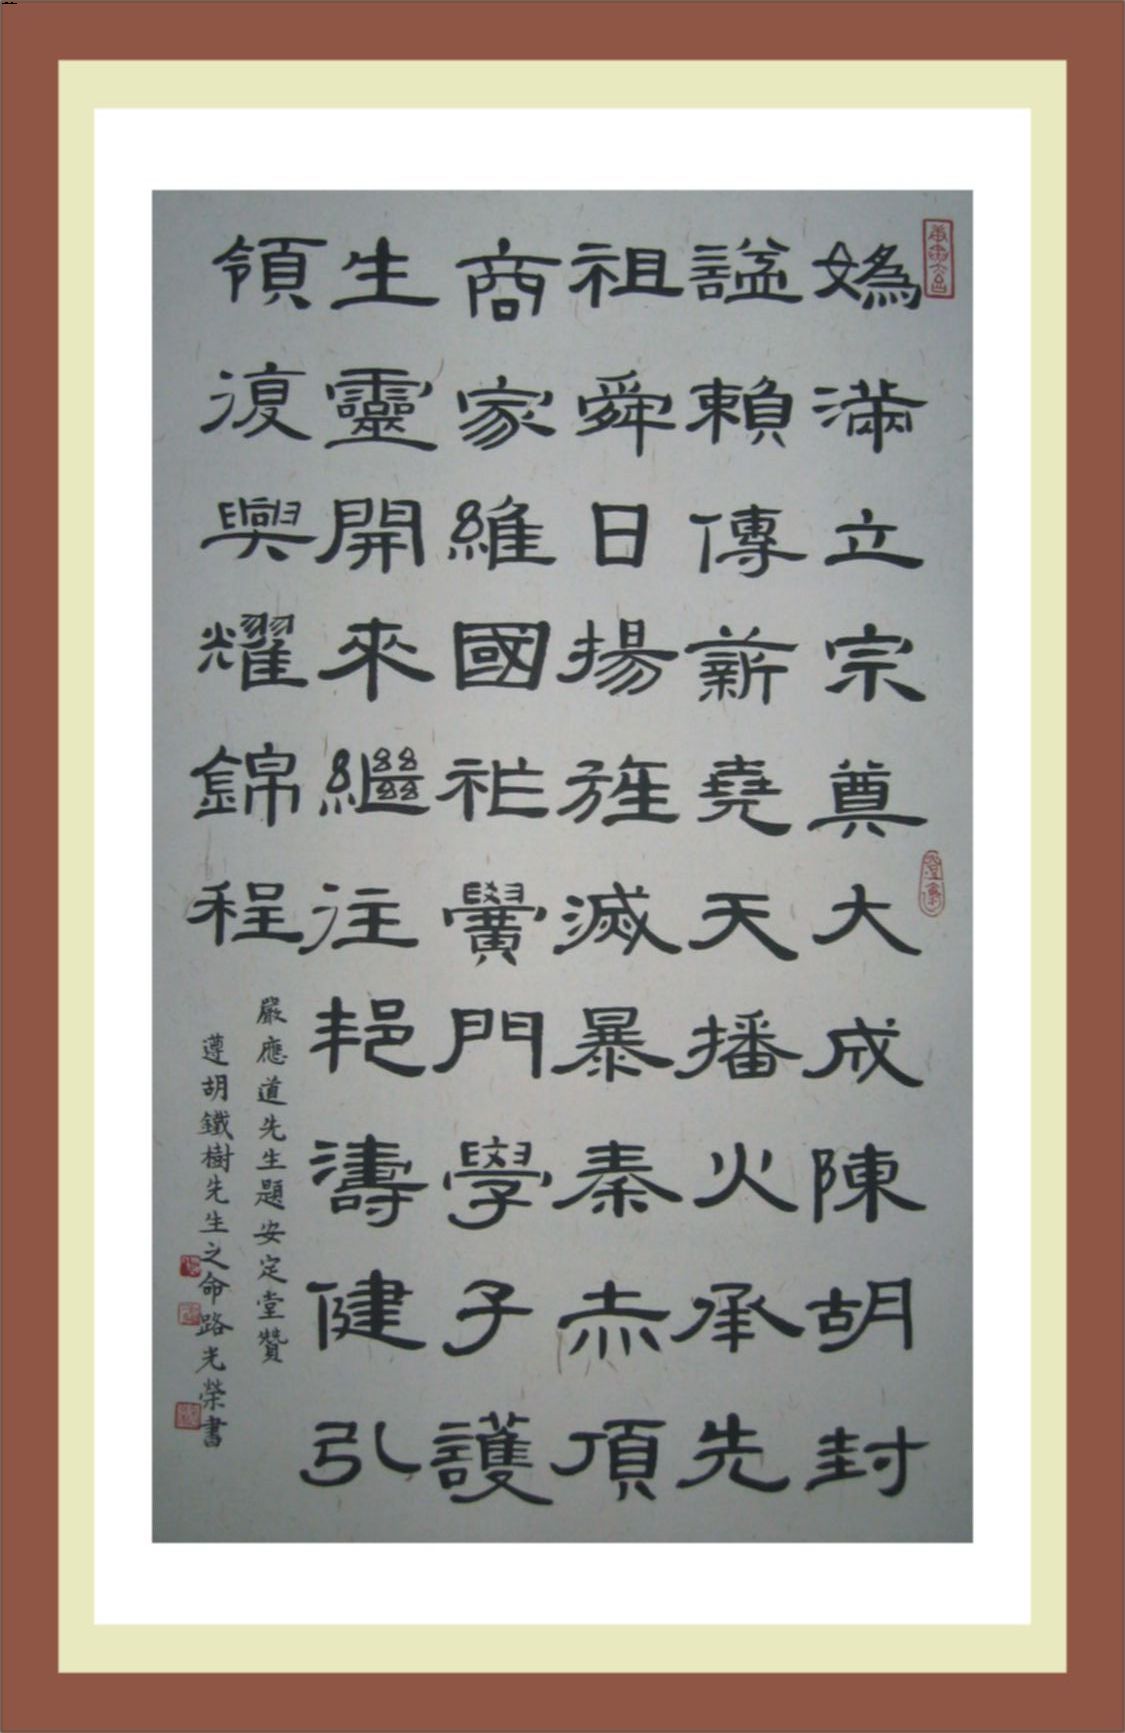 嬀滿立宗奠大成陳胡封
謚賴傳薪堯天播火承先
祖舜日揚旌滅暴秦赤項
商家維國祚黌門學子護
生靈開來繼往艳濤健引
領復興耀錦程
嚴應道先生題安定堂贊
遵胡鐵樹先生之命路光榮書